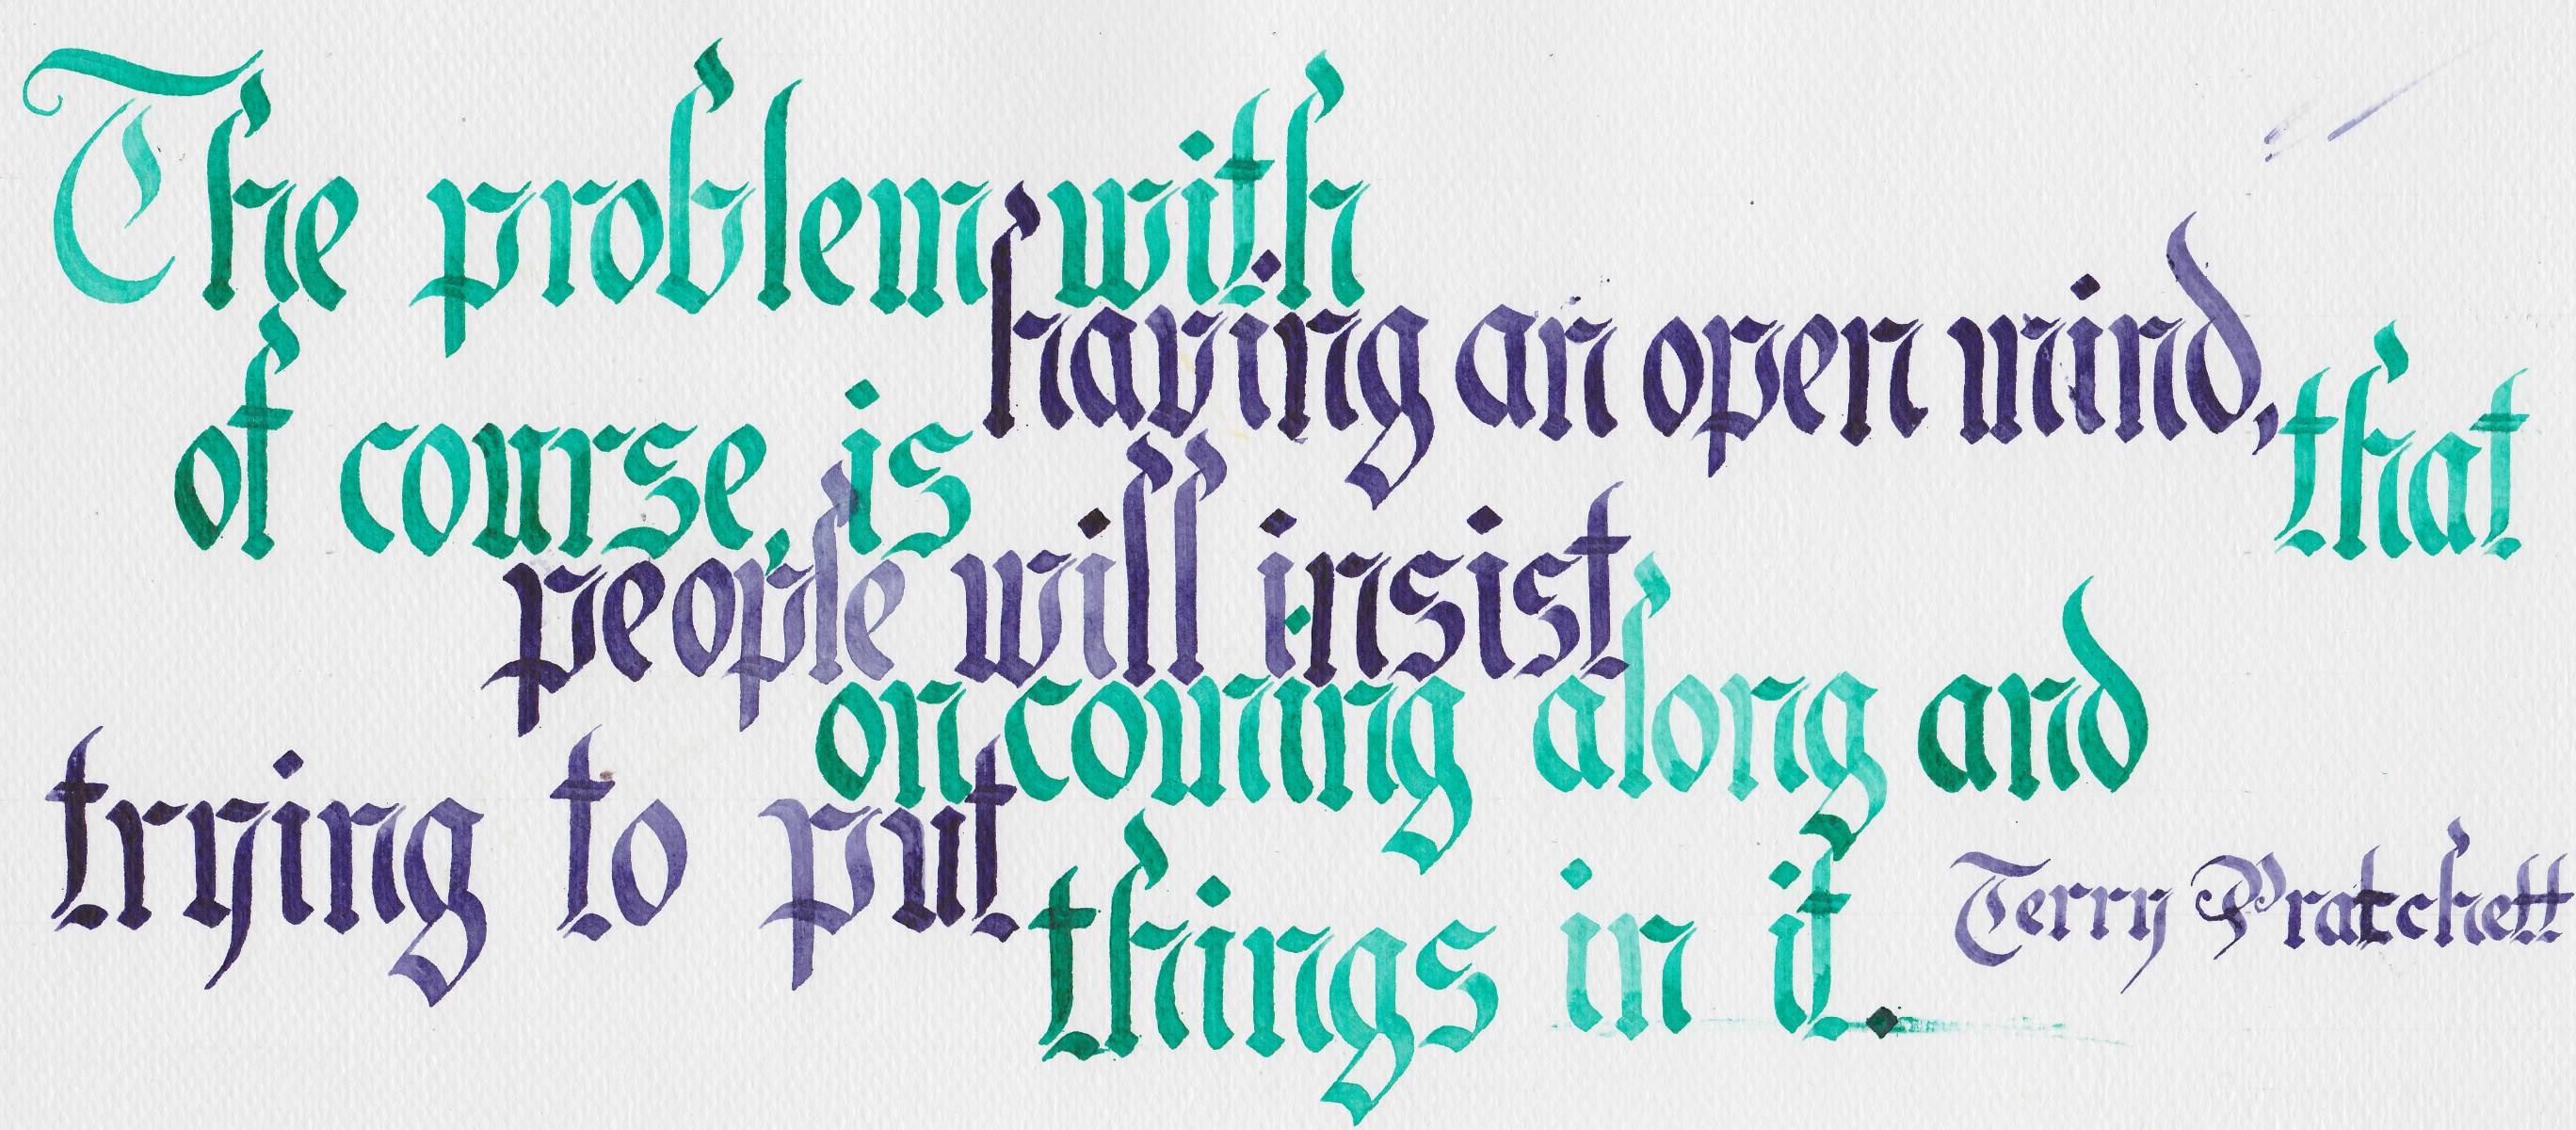 The problem with
having an open mind,
of course, is
that
people will insist
on coming along and
trying to put
things in it.
Terry Pratchett